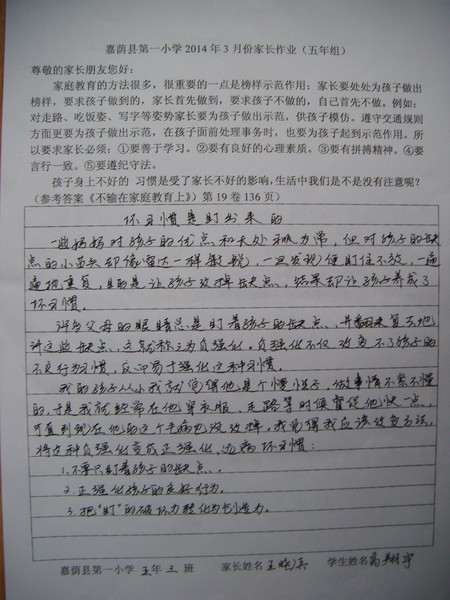 嘉荫县第一小学2014年3月份家长作业（五年组）
尊敬的家长朋友您好：
家庭教育的方法很多，很重要的一点是榜样示范作用；家长要处处为孩子做出
榜样，要求孩子做到的，家长首先做到，要求孩子不做的，自己首先不做。例如：
对走路、吃饭姿、写字等姿势家长要为孩子做出示范，供孩子模仿。遵守交通规则
方面更要为孩子做出示范，在孩子面前处理事务时，也要为孩子起到示范作用。所
以要求家长必须：①要善于学习。②要有良好的心理素质。③要有拼搏精神。④要
言行一致。⑤要遵纪守法。
孩子身上不好的 习惯是受了家长不好的影响，生活中我们是不是没有注意呢？
（参考答案《不输在家庭教育上》）第19卷136页）
坏习惯是盯出来的
一些妈妈对孩子的优点和长处视为常，但对孩子的缺
点的小苗头却像雷达一样敏锐，一旦发现便盯住不放，一遍
遍地重复，目的是让孩子改掉缺点，结果却让孩子养成了
坏习惯。
许多父母的眼睛只是盯着孩子的缺点，并翻来复去地
讲这些缺点，这就称之为负强化，负强化不仅改变不了孩子的
不良行为习惯，反而易于强化这种习惯。
我的孩子从小我就觉得他是个慢性子，做事情不紧不慢
的，于是我就经常在他穿衣服、走路等时候督促他快一点，
可直到现在他的这个毛病也没改掉，我觉得我应该改变方法，
将这种负强化变成正强化，远离坏习惯：
1.不要只盯着孩子的缺点。
2.正强化孩子的良好行为。
3.把"盯"的破坏力转化为创造力。
嘉荫县第一小学 五 年 三 班 家长姓名 王晓兵 学生姓名 高翔宇